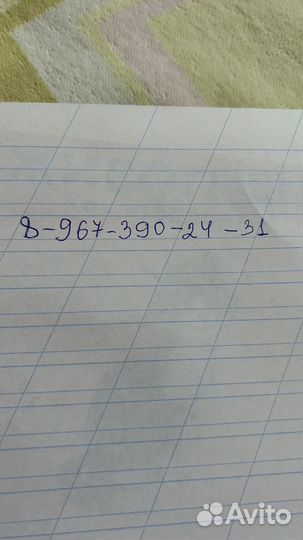 8-967-390-24-31
Avito